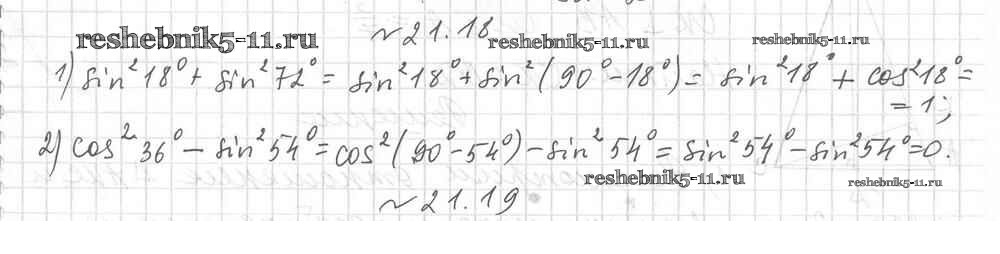 reshebnik5-11.ru
№21.18
reshebnik5-11.ru
reshebnik5-11.ru
1) sin²18° + sin²72° = sin²18° + sin²(90° - 18°) = sin²18° + cos²18° =
= 1;
2) cos²36° - sin²54° = cos²(90° - 54°) - sin²54° = sin²54° - sin²54° = 0.
reshebnik5-11.ru
reshebnik5-11.ru
№21.19